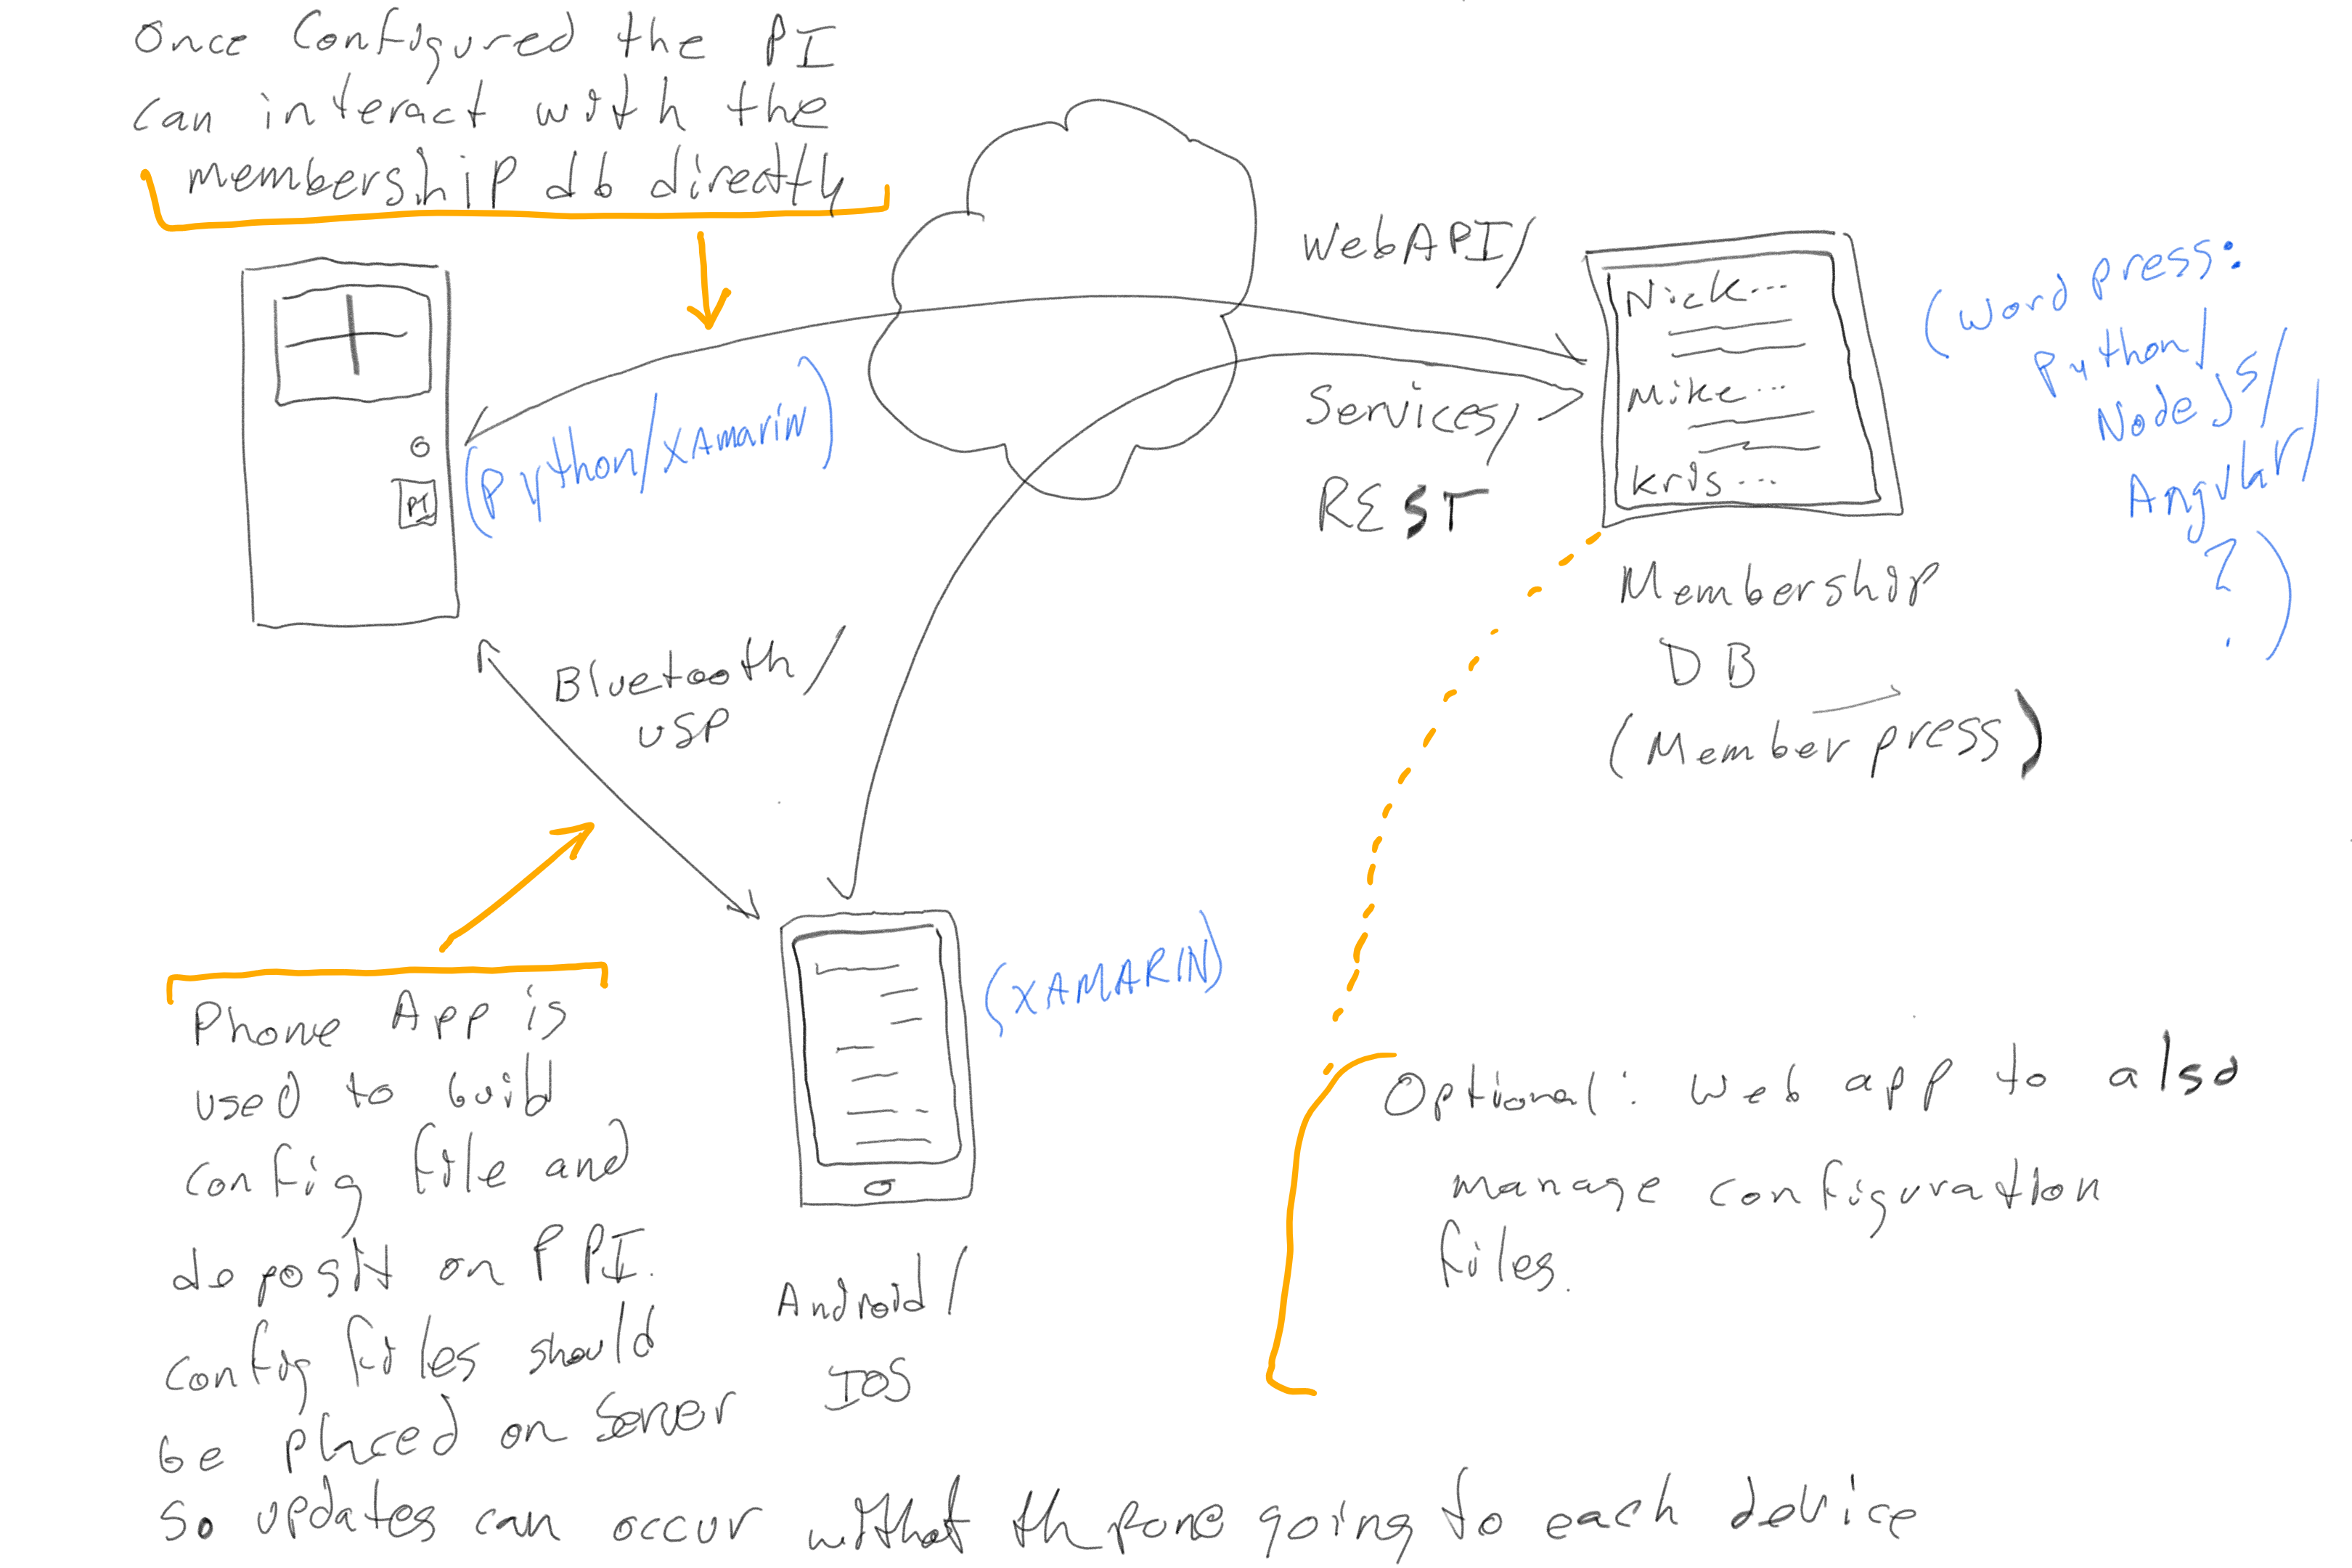 Once Configured the PI
can interact with the
membership db directly
WebAPI/
Services/
REST
Nick...
Mike...
Kris...
(Word Press:
Python/
Node JS/
Angular/
?)
(Python/XAmarin)
PI
Membership
DB
(Member press)
Bluetooth/
USP
(XAMARIN)
Android/
IOS
Phone App is
used to build
config file and
deposit on PPI.
config files should
be placed on Server
so updates can occur without going to each device
Optional: Web app to also
manage configuration
files.